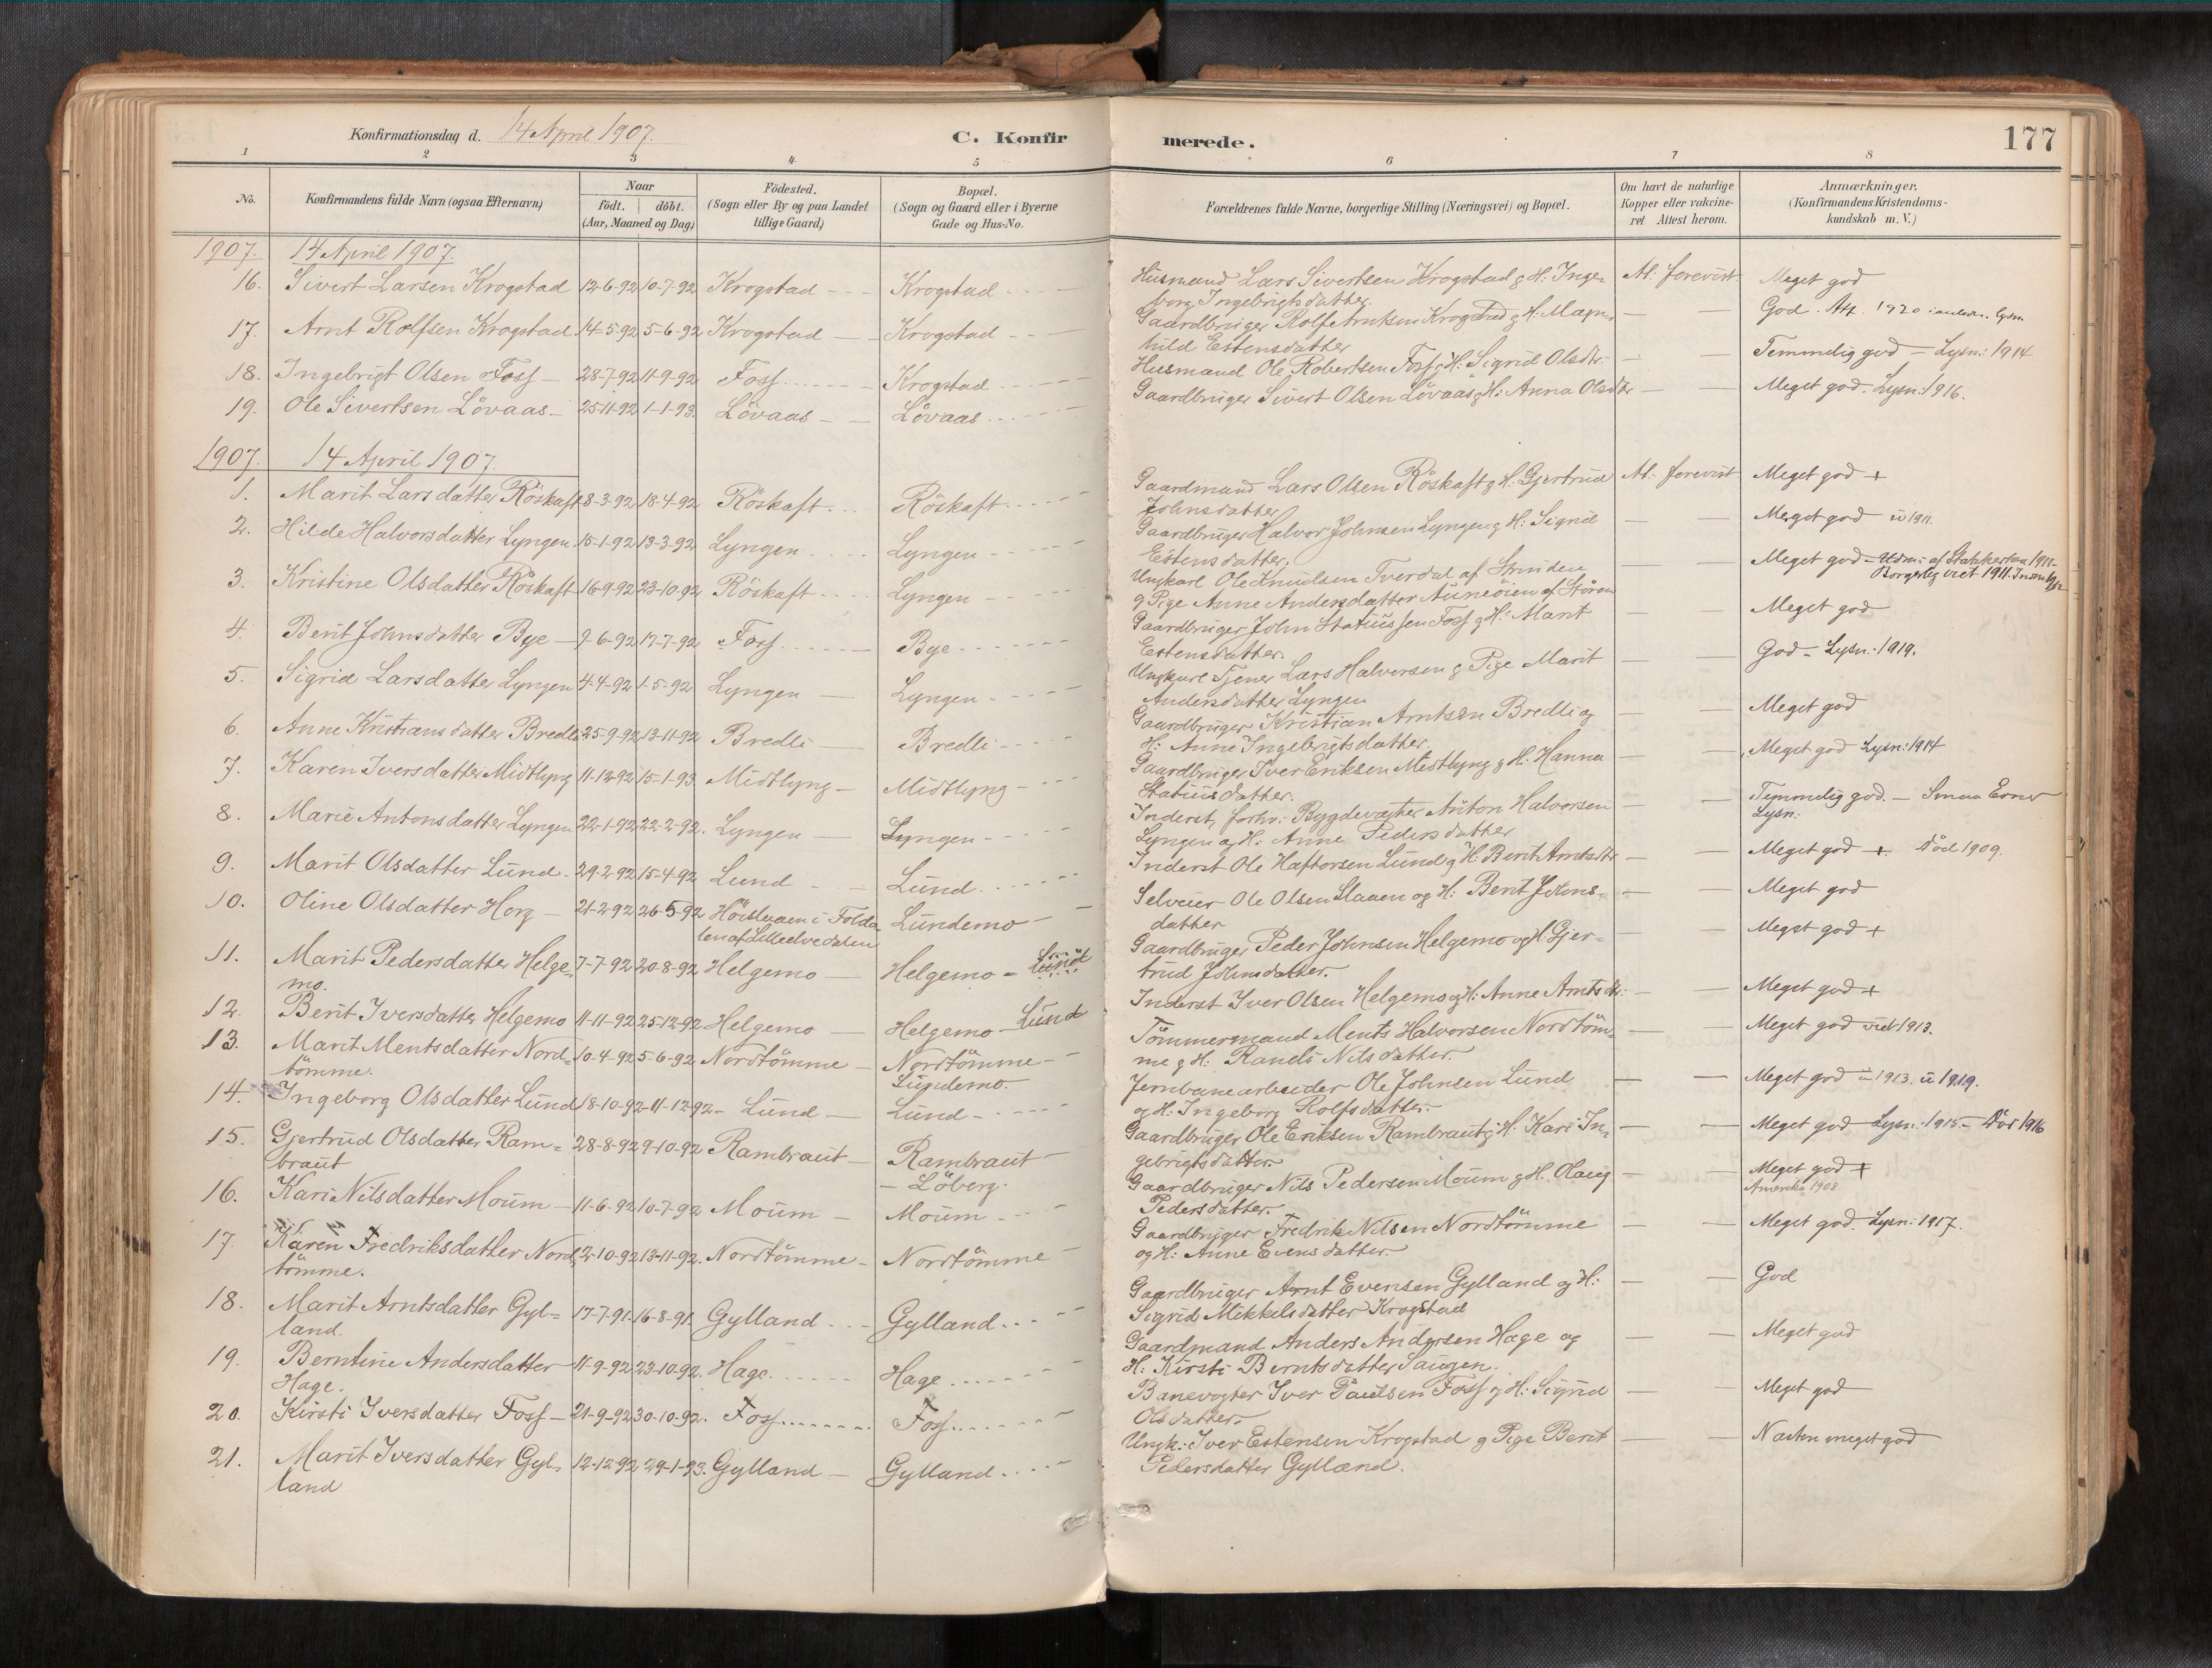 Konfirmationsdag d. 14 April 1907. C. Konfirmerede. 177
1 2 3 4 5 6 7 8
No. Konfirmandens fulde Navn (ogsaa Efternavn) Naar födt. döbt. (Aar, Maaned og Dag) Födested. (Sogn eller By og paa Landet tillige Gaard) Bopæl. (Sogn og Gaard eller i Byerne Gade og Hus-No. Forældrenes fulde Navne, borgerlige Stilling (Næringsvei) og Bopæl. Om havt de naturlige Kopper eller vaccineret Attest herom. Anmærkninger. (Konfirmandens Kristendomskundskab m. V.)
1907. 14 April 1907.
16. Sivert Larsen Krogstad 12-6-92 10-7-92 Krogstad Krogstad Husmand Lars Sivertsen Krogstad g H: Inge- At: forevist Meget god
borg Ingebrigtsdatter.
17. Arnt Rolfsen Krogstad 14-5-92 5-6-92 Krogstad Krogstad Gaardbruger Rolf Arntsen Krogstad g H: Magn- — — God. Att. 1920 Lysn.
hild Estensdatter
18. Ingebrigt Olsen Foss 28-7-92 11-9-92 Foss Krogstad Husmand Ole Robertsen Foss g H: Sigrid Olsdtr. — — Temmelig god - Lysn: 1914
19. Ole Sivertsen Lövaas 25-11-92 1-1-93. Lövaas Lövaas Gaardbruger Sivert Olsen Lövaas g H: Anna Olsdtr — — Meget god - Lysn: 1916.
1907. 14 April 1907.
1. Marit Larsdatter Röskaft 18-3-92 18-4-92 Röskaft Röskaft Gaardmand Lars Olsen Röskaft g H: Gjertrud At: forevist Meget god +
Johnsdatter
2. Hilde Halvorsdatter Lyngen 15-1-92 13-3-92 Lyngen Lyngen Gaardbruger Halvor Johnsen Lyngen g H: Sigrid — — Meget god u 1911.
Estensdatter.
3. Kristine Olsdatter Röskaft 16-9-92 23-10-92 Röskaft Lyngen Ungkarl Ole Knudsen Tverdal af Strinden — — Meget god - Udm: af Statskirken 1911-
g Pige Anne Andersdatter Auneöien af Stören Borgerlig viet 1911.
4. Berit Johnsdatter Bye 9-6-92 17-7-92 Foss Bye Gaardbruger John Statiussen Foss g H: Marit — — Meget god
Estensdatter.
5. Sigrid Larsdatter Lyngen 4-4-92 1-5-92 Lyngen Lyngen Ungkarl Tjener Lars Halvorsen g Pige Marit — — God - Lysn: 1919.
Andersdatter Lyngen
6. Anne Kristiansdatter Bredli 25-9-92 13-11-92 Bredli Bredli Gaardbruger Kristian Arntsen Bredli og — — Meget god
H: Anne Ingebrigtsdatter.
7. Karen Iversdatter Midtlyng 11-12-92 15-1-93 Midtlyng Midtlyng Gaardbruger Iver Eriksen Midtlyng g H: Hanna — — Meget god Lysn: 1914
Statiusdatter.
8. Marie Antonsdatter Lyngen 22-1-92 22-2-92. Lyngen Lyngen Inderst, forhv: Bygdevægter Anton Halvorsen — — Temmelig god. - Smaa Evner
Lyngen og H: Anne Pedersdatter Lysn:
9. Marit Olsdatter Lund 29-2-92 15-4-92 Lund Lund Inderst Ole Haftorsen Lund g H: Berit Arntsdtr — — Meget god + Död 1909.
10. Oline Olsdatter Horg 21-2-92 26-5-92 Lundemo Selveier Ole Olsen Slaaen og H: Berit Johns- — — Meget god
len af Lilleelvedalen datter
11. Marit Pedersdatter Helge- 7-7-92 20-8-92 Helgemo Helgemo - Lund Gaardbruger Peder Johnsen Helgemo og H: Gjer- — — Meget god +
mo. trud Johnsdatter.
12. Berit Iversdatter Helgemo 11-11-92 25-12-92 Helgemo Helgemo - Lund Inderst Iver Olsen Helgemo g H: Anne Arntsdtr: — — Meget god +
13. Marit Mentsdatter Nord- 10-4-92 5-6-92 Nordtömme Nordtömme Tömmermand Ments Halvorsen Nordtöm- — — Meget god viet 1913.
tömme. Lundemo. me g H: Randi Nilsdatter.
14. Ingeborg Olsdatter Lund 18-10-92 11-12-92 Lund Lund Jernbanearbeider Ole Johnsen Lund — — Meget god u 1913. u 1919.
og H: Ingeborg Rolfsdatter.
15. Gjertrud Olsdatter Ram- 28-8-92 9-10-92 Rambraut Rambraut Gaardbruger Ole Eriksen Rambraut g H: Kari In- — — Meget god Lysn: 1915 - Död 1916
braut - Löberg. gebrigtsdatter.
16. Kari Nilsdatter Moum 11-6-92 10-7-92 Moum Moum Gaardbruger Nils Pedersen Moum g H: Olaug — — Meget god +
Pedersdatter. Amerika 1908
17. Karen Fredriksdatter Nord- 2-10-92 13-11-92. Nordtömme Nordtömme Gaardbruger Fredrik Nilsen Nordtömme — — Meget god. Lysn: 1917.
tömme. og H: Anne Evensdatter.
18. Marit Arntsdatter Gyl- 17-7-91. 16-8-91. Gylland Gylland Gaardbruger Arnt Evensen Gylland og H: — — God
land. Sigrid Mikkelsdatter Krogstad
19. Berntine Andersdatter 11-9-92 23-10-92. Hage Hage Gaardmand Anders Andersen Hage og — — Meget god
Hage. H: Kirsti Berntsdatter Saugen.
20. Kirsti Iversdatter Foss 21-9-92 30-10-92. Foss Foss Banevogter Iver Paulsen Foss g H: Sigrid — — Meget god
Olsdatter.
21. Marit Iversdatter Gyl- 12-12-92 29-1-93. Gylland Gylland Ungk: Iver Estensen Krogstad g Pige Berit — — Næsten meget god
land Pedersdatter Gylland.